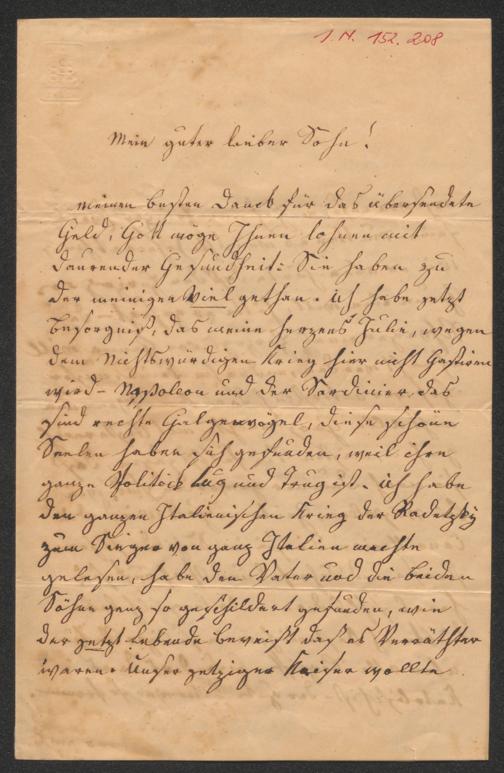 I. N. 152.208
Mein guter lieber Sohn!
meinen besten Danck für das übersendete
Geld, Gott möge Ihnen lohnen mit
daurender Gesundheit: Sie haben zu
der meinigen viel gethan. ich habe jetzt
besorgniß, das meine herzens Julie, wegen
dem Nichtswürdigen Krieg hier nicht Gastiren
wird – Nappoleon und der Sardinier, das
sind rechte Galgenvögel, diese schöne
Seelen haben sich gefunden, weil ihre
ganze Politick Lug und Trug ist. ich habe
den ganzen Italienischen Krieg der Radetzky
zum Sieger von ganz Italien machte
gelesen, habe den Vater und die beiden
Söhne ganz so geschildert gefunden, wie
der jetzt Lebende beweist daß es Verräthter
waren. Unser jetziger Kaiser wollte